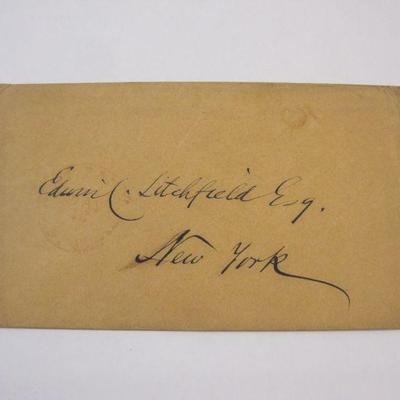 Edwin C. Litchfield Esq.
New York